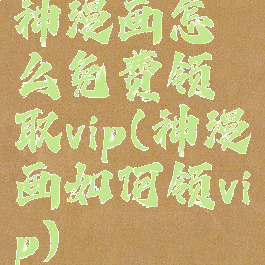 神漫画怎
么免费领
取vip(神漫
画如何领vi
p)